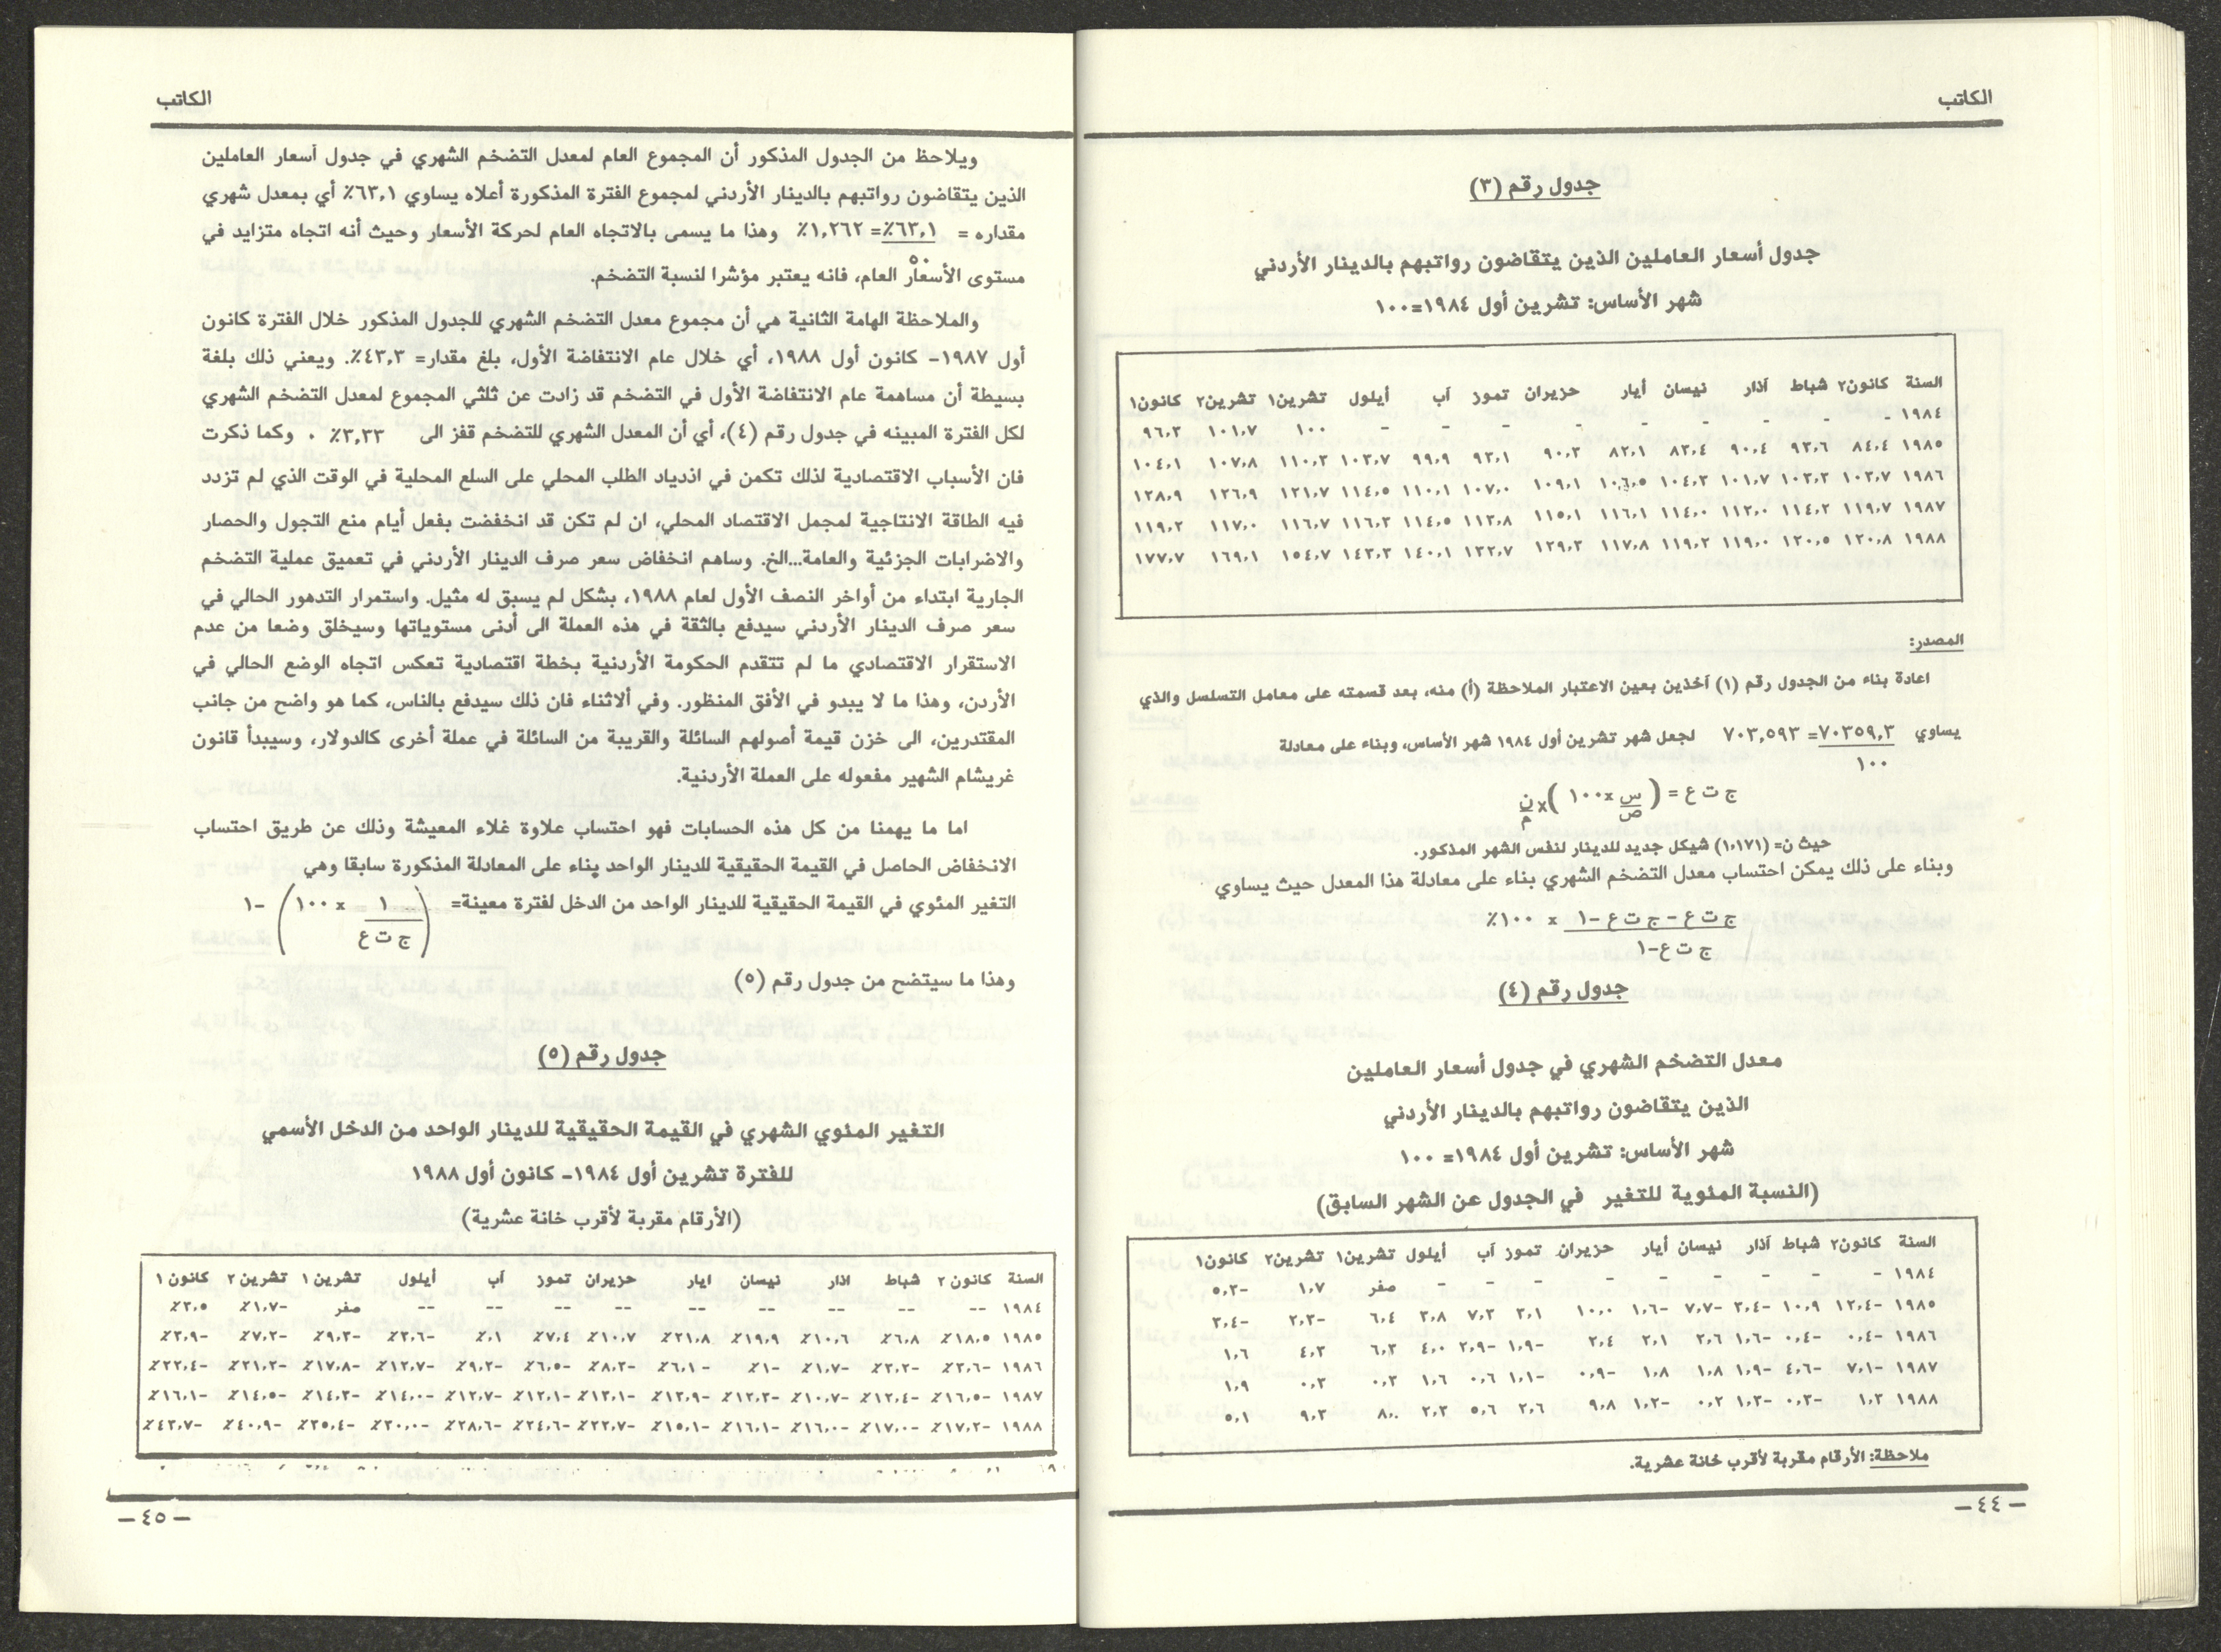 الكاتب
جدول رقم (٣)
جدول أسعار العاملين الذين يتقاضون رواتبهم بالدينار الأردني
شهر الأساس: تشرين أول ١٩٨٤=١٠٠
السنة كانون٢ شباط آذار نيسان أيار حزيران تموز آب أيلول تشرين١ تشرين٢ كانون١
١٩٨٤ - - - - - - - - - ١٠٠ ١٠١,٧ ٩٦,٣
١٩٨٥ ٨٤,٤ ٩٣,٦ ٩٠,٤ ٨٣,٤ ٨٢,١ ٩٠,٣ ٩٣,١ ٩٩,٩ ١٠٣,٧ ١١٠,٣ ١٠٧,٨ ١٠٤,١
١٩٨٦ ١٠٣,٧ ١٠٣,٣ ١٠١,٧ ١٠٤,٣ ١٠٦,٥ ١٠٩,١ ١٠٧,٠ ١١٠,١ ١١٤,٥ ١٢١,٧ ١٢٦,٩ ١٢٨,٩
١٩٨٧ ١١٩,٧ ١١٤,٢ ١١٢,٠ ١١٤,٠ ١١٦,١ ١١٥,١ ١١٣,٨ ١١٤,٥ ١١٦,٣ ١١٦,٧ ١١٧,٠ ١١٩,٢
١٩٨٨ ١٢٠,٨ ١٢٠,٥ ١١٩,٠ ١١٩,٢ ١١٧,٨ ١٢٩,٣ ١٣٢,٧ ١٤٠,١ ١٤٣,٣ ١٥٤,٧ ١٦٩,١ ١٧٧,٧
المصدر:
اعادة بناء من الجدول رقم (١) آخذين بعين الاعتبار الملاحظة (أ) منه، بعد قسمته على معامل التسلسل والذي
يساوي ٧٠٣٥٩,٣= ٧٠٣,٥٩٣ لجعل شهر تشرين أول ١٩٨٤ شهر الأساس، وبناء على معادلة
١٠٠
ج ت ع = ( س x ١٠٠ )x ن
ص م
حيث ن= (١,١٧١) شيكل جديد للدينار لنفس الشهر المذكور.
وبناء على ذلك يمكن احتساب معدل التضخم الشهري بناء على معادلة هذا المعدل حيث يساوي
ج ت ع - ج ت ع -١ x ١٠٠٪
ج ت ع-١
جدول رقم (٤)
معدل التضخم الشهري في جدول أسعار العاملين
الذين يتقاضون رواتبهم بالدينار الأردني
شهر الأساس: تشرين أول ١٩٨٤= ١٠٠
(النسبة المئوية للتغير في الجدول عن الشهر السابق)
السنة كانون٢ شباط آذار نيسان أيار حزيران تموز آب أيلول تشرين١ تشرين٢ كانون١
١٩٨٤ - - - - - - - - - صفر ١,٧ -٥,٣
١٩٨٥ -١٢,٤ ١٠,٩ -٣,٤ -٧,٧ -١,٦ ١٠,٠ ٣,١ ٧,٣ ٣,٨ ٦,٤ -٢,٣ -٣,٤
١٩٨٦ -٠,٤ -٠,٤ -١,٦ ٢,٦ ٢,١ ٢,٤ -١,٩ -٢,٩ ٤,٠ ٦,٣ ٤,٣ ١,٦
١٩٨٧ -٧,١ -٤,٦ -١,٩ ١,٨ ١,٨ -٠,٩ -١,١ ٠,٦ ١,٦ ٠,٣ ٠,٣ ١,٩
١٩٨٨ ١,٣ -٠,٣ -١,٣ ٠,٢ -١,٢ ٩,٨ ٢,٦ ٥,٦ ٢,٣ ٨,٠ ٩,٣ ٥,١
ملاحظة: الأرقام مقربة لأقرب خانة عشرية.
– ٤٤ –
الكاتب
ويلاحظ من الجدول المذكور أن المجموع العام لمعدل التضخم الشهري في جدول أسعار العاملين
الذين يتقاضون رواتبهم بالدينار الأردني لمجموع الفترة المذكورة أعلاه يساوي ٦٣,١٪ أي بمعدل شهري
مقداره = ٦٣,١٪= ١,٢٦٢٪ وهذا ما يسمى بالاتجاه العام لحركة الأسعار وحيث أنه اتجاه متزايد في
٥٠
مستوى الأسعار العام، فانه يعتبر مؤشرا لنسبة التضخم.
والملاحظة الهامة الثانية هي أن مجموع معدل التضخم الشهري للجدول المذكور خلال الفترة كانون
أول ١٩٨٧- كانون أول ١٩٨٨، أي خلال عام الانتفاضة الأول، بلغ مقدار= ٤٣,٣٪. ويعني ذلك بلغة
بسيطة أن مساهمة عام الانتفاضة الأول في التضخم قد زادت عن ثلثي المجموع لمعدل التضخم الشهري
لكل الفترة المبينه في جدول رقم (٤)، أي أن المعدل الشهري للتضخم قفز الى ٣,٣٣٪ . وكما ذكرت
فان الأسباب الاقتصادية لذلك تكمن في ازدياد الطلب المحلي على السلع المحلية في الوقت الذي لم تزدد
فيه الطاقة الانتاجية لمجمل الاقتصاد المحلي، ان لم تكن قد انخفضت بفعل أيام منع التجول والحصار
والاضرابات الجزئية والعامة...الخ. وساهم انخفاض سعر صرف الدينار الأردني في تعميق عملية التضخم
الجارية ابتداء من أواخر النصف الأول لعام ١٩٨٨، بشكل لم يسبق له مثيل. واستمرار التدهور الحالي في
سعر صرف الدينار الأردني سيدفع بالثقة في هذه العملة الى أدنى مستوياتها وسيخلق وضعا من عدم
الاستقرار الاقتصادي ما لم تتقدم الحكومة الأردنية بخطة اقتصادية تعكس اتجاه الوضع الحالي في
الأردن، وهذا ما لا يبدو في الأفق المنظور. وفي ألاثناء فان ذلك سيدفع بالناس، كما هو واضح من جانب
المقتدرين، الى خزن قيمة أصولهم السائلة والقريبة من السائلة في عملة أخرى كالدولار، وسيبدأ قانون
غريشام الشهير مفعوله على العملة الأردنية.
اما ما يهمنا من كل هذه الحسابات فهو احتساب علاوة غلاء المعيشة وذلك عن طريق احتساب
الانخفاض الحاصل في القيمة الحقيقية للدينار الواحد بناء على المعادلة المذكورة سابقا وهي
التغير المئوي في القيمة الحقيقية للدينار الواحد من الدخل لفترة معينة= ( ١ x ١٠٠ ) -١
ج ت ع
وهذا ما سيتضح من جدول رقم (٥)
جدول رقم (٥)
التغير المئوي الشهري في القيمة الحقيقية للدينار الواحد من الدخل الأسمي
للفترة تشرين أول ١٩٨٤- كانون أول ١٩٨٨
(الأرقام مقربة لأقرب خانة عشرية)
السنة كانون ٢ شباط اذار نيسان ايار حزيران تموز آب أيلول تشرين ١ تشرين ٢ كانون ١
١٩٨٤ -- -- -- -- -- -- -- -- -- صفر -١,٧٪ ٣,٥٪
١٩٨٥ ١٨,٥٪ ٦,٨٪ ١٠,٦٪ ١٩,٩٪ ٢١,٨٪ ١٠,٧٪ ٧,٤٪ ٠,١٪ -٣,٦٪ -٩,٣٪ -٧,٢٪ -٣,٩٪
١٩٨٦ -٣,٦٪ -٣,٢٪ -١,٧٪ -١٪ -٦,١٪ -٨,٣٪ -٦,٥٪ -٩,٢٪ -١٢,٧٪ -١٧,٨٪ -٢١,٢٪ -٢٢,٤٪
١٩٨٧ -١٦,٥٪ -١٢,٤٪ -١٠,٧٪ -١٢,٣٪ -١٣,٩٪ -١٣,١٪ -١٢,١٪ -١٢,٧٪ -١٤,٠٪ -١٤,٣٪ -١٤,٥٪ -١٦,١٪
١٩٨٨ -١٧,٢٪ -١٧,٠٪ -١٦,٠٪ -١٦,١٪ -١٥,١٪ -٢٢,٧٪ -٢٤,٦٪ -٢٨,٦٪ -٣٠,٠٪ -٣٥,٤٪ -٤٠,٩٪ -٤٣,٧٪
– ٤٥ –